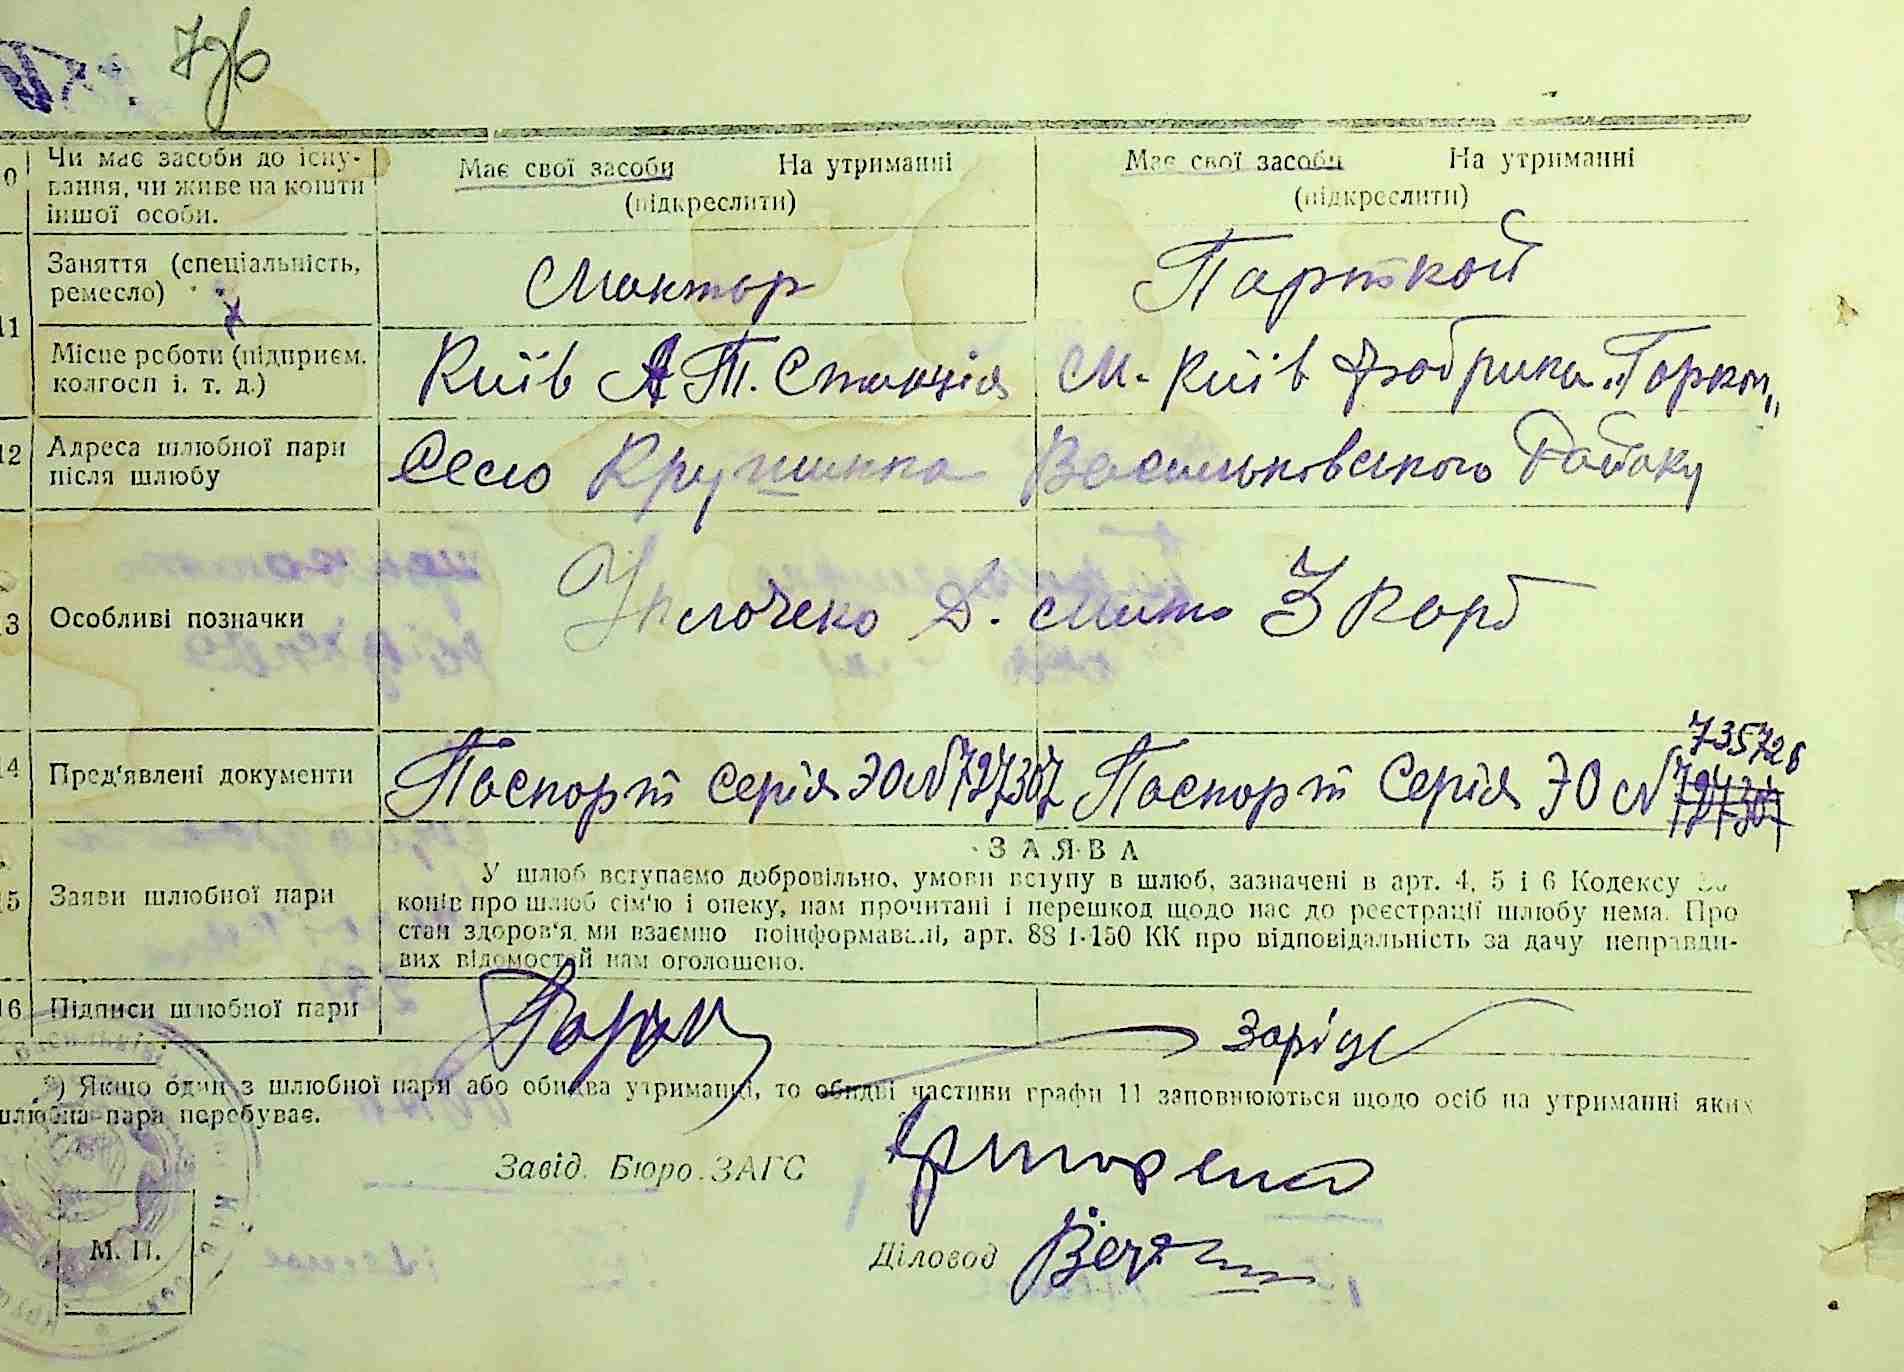 Чи має засоби до існу-
вання, чи живе на кошти
іншої особи.
Має свої засоби На утриманні
(підкреслити)
Має свої засоби На утриманні
(підкреслити)
11
Заняття (спеціальність,
ремесло)
Монтьор
Парткой
Місце роботи (підприєм.
колгосп і. т. д.)
Київ А Т. Станція
м. Київ Фабрика „Горкой"
12
Адреса шлюбної пари
після шлюбу
Село Крушинка Васильковського Району
13
Особливі позначки
мито 3 карб
14
Пред'явлені документи
Паспорт Серія ЭО № 727307
Паспорт Серія ЭО № 727307 735726
ЗАЯВА
15
Заяви шлюбної пари
У шлюб вступаємо добровільно, умови вступу в шлюб, зазначені в арт. 4, 5 і 6 Кодексу За-
конів про шлюб сім'ю і опеку, нам прочитані і перешкод щодо нас до реєстрації шлюбу нема. Про
стан здоров'я ми взаємно поінформавалі, арт. 88 і 150 КК про відповідальність за дачу неправди-
вих відомостей нам оголошено.
16
Підписи шлюбної пари
Заріцк
*) Якщо один з шлюбної пари або обидва утриманці, то обидві частини графи 11 заповнюються щодо осіб на утриманні яких
шлюбна пара перебуває.
Завід. Бюро ЗАГС
Діловод
М. П.